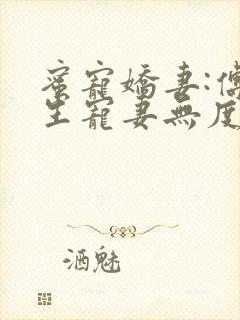 蜜寵嬌妻:傅
生寵妻無度
酒魅